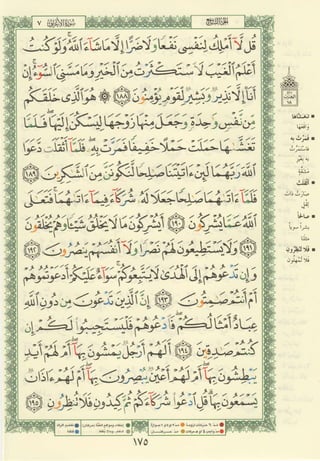 الجزء التاسع
سورة الأعراف ٧
قُل لَّآ أَمْلِكُ لِنَفْسِى نَفْعًا وَلَا ضَرًّا إِلَّا مَا شَآءَ ٱللَّهُ وَلَوْ كُنتُ
أَعْلَمُ ٱلْغَيْبَ لَٱسْتَكْثَرْتُ مِنَ ٱلْخَيْرِ وَمَا مَسَّنِىَ ٱلسُّوٓءُ إِنْ
أَنَا۠ إِلَّا نَذِيرٌ وَبَشِيرٌ لِّقَوْمٍ يُؤْمِنُونَ ١٨٨ ۞ هُوَ ٱلَّذِى خَلَقَكُم
مِّن نَّفْسٍ وَٰحِدَةٍ وَجَعَلَ مِنْهَا زَوْجَهَا لِيَسْكُنَ إِلَيْهَا فَلَمَّا
تَغَشَّىٰهَا حَمَلَتْ حَمْلًا خَفِيفًا فَمَرَّتْ بِهِۦ فَلَمَّآ أَثْقَلَت دَّعَوَا
ٱللَّهَ رَبَّهُمَا لَئِنْ ءَاتَيْتَنَا صَٰلِحًا لَّنَكُونَنَّ مِنَ ٱلشَّٰكِرِينَ ١٨٩
فَلَمَّآ ءَاتَىٰهُمَا صَٰلِحًا جَعَلَا لَهُۥ شُرَكَآءَ فِيمَآ ءَاتَىٰهُمَا فَتَعَٰلَى
ٱللَّهُ عَمَّا يُشْرِكُونَ ١٩٠ أَيُشْرِكُونَ مَا لَا يَخْلُقُ شَيْـًٔا وَهُمْ يُخْلَقُونَ
١٩١ وَلَا يَسْتَطِيعُونَ لَهُمْ نَصْرًا وَلَآ أَنفُسَهُمْ يَنصُرُونَ ١٩٢
وَإِن تَدْعُوهُمْ إِلَى ٱلْهُدَىٰ لَا يَتَّبِعُوكُمْ سَوَآءٌ عَلَيْكُمْ أَدَعَوْتُمُوهُمْ
أَمْ أَنتُمْ صَٰمِتُونَ ١٩٣ إِنَّ ٱلَّذِينَ تَدْعُونَ مِن دُونِ ٱللَّهِ
عِبَادٌ أَمْثَالُكُمْ فَٱدْعُوهُمْ فَلْيَسْتَجِيبُوا۟ لَكُمْ إِن
كُنتُمْ صَٰدِقِينَ ١٩٤ أَلَهُمْ أَرْجُلٌ يَمْشُونَ بِهَآ أَمْ لَهُمْ أَيْدٍ
يَبْطِشُونَ بِهَآ أَمْ لَهُمْ أَعْيُنٌ يُبْصِرُونَ بِهَآ أَمْ لَهُمْ ءَاذَانٌ
يَسْمَعُونَ بِهَا قُلِ ٱدْعُوا۟ شُرَكَآءَكُمْ ثُمَّ كِيدُونِ فَلَا تُنظِرُونِ ١٩٥
١٧٥